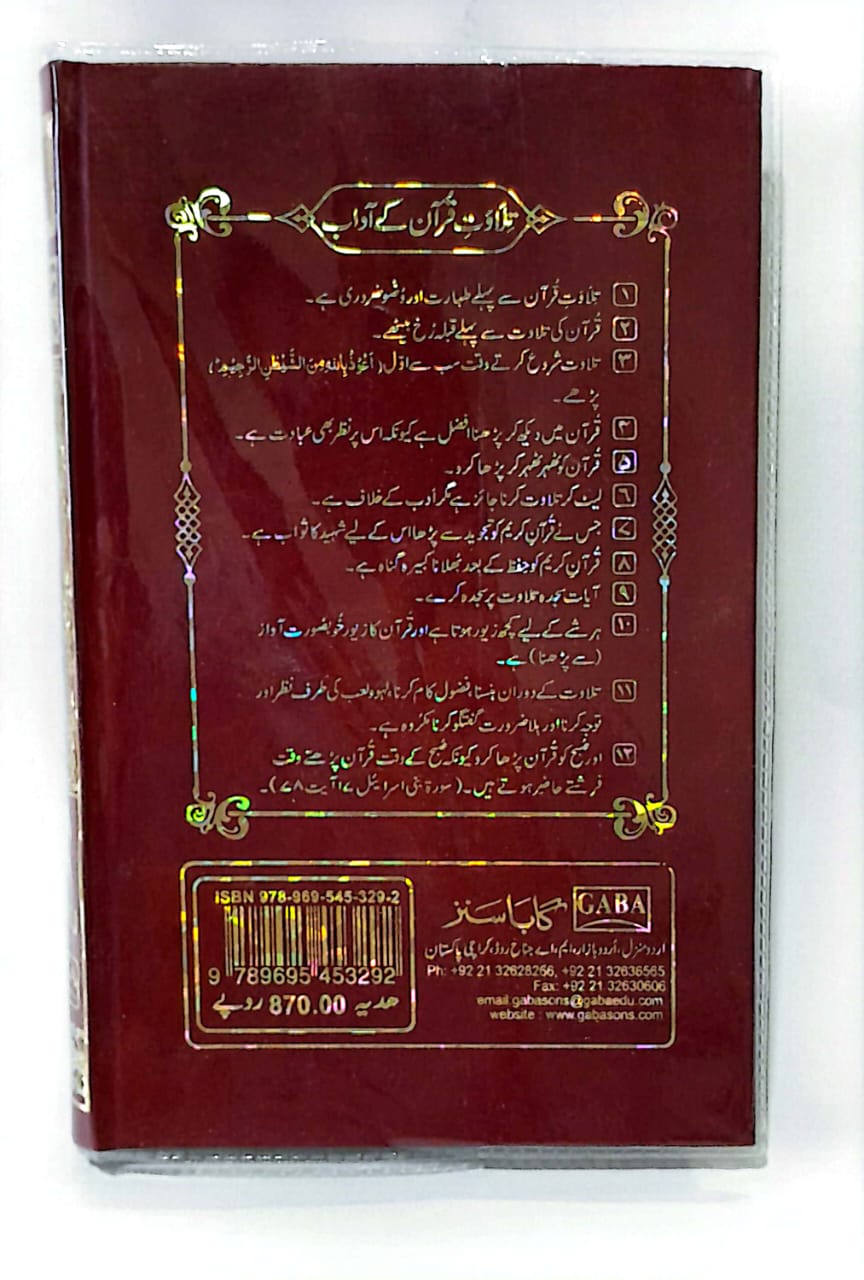 تلاوتِ قُرآن کے آداب
۱ تلاوتِ قُرآن سے پہلے طہارت اور وُضو ضروری ہے۔
۲ قُرآن کی تلاوت سے پہلے قبلہ رُخ بیٹھے۔
۳ تلاوت شروع کرتے وقت سب سے اوّل (اَعُوْذُ بِاللهِ مِنَ الشَّيْطٰنِ الرَّجِيْمِ ؕ)
پڑھے۔
۴ قُرآن میں دیکھ کر پڑھنا افضل ہے کیونکہ اس پر نظر بھی عبادت ہے۔
۵ قُرآن کو ٹھہر ٹھہر کر پڑھا کرو۔
۶ لیٹ کر تلاوت کرنا جائز ہے مگر ادب کے خلاف ہے۔
۷ جس نے قُرآنِ کریم کو تجوید سے پڑھا اس کے لیے شہید کا ثواب ہے۔
۸ قُرآنِ کریم کو حفِظ کے بعد بُھلانا کبیرہ گناہ ہے۔
۹ آیات سجدہ تلاوت پر سجدہ کرے۔
۱۰ ہر شے کے لیے کچھ زیور ہوتا ہے اور قُرآن کا زیور خُوبصورت آواز
(سے پڑھنا) ہے۔
۱۱ تلاوت کے دوران ہنسنا، فضول کام کرنا، لہو ولعب کی طرف نظر اور
توجہ کرنا اور بلا ضرورت گفتگو کرنا مکروہ ہے۔
۱۲ اور صُبح کو قُرآن پڑھا کرو کیونکہ صُبح کے وقت قُرآن پڑھتے وقت
فرشتے حاضر ہوتے ہیں۔ (سورۃ بنی اسرائیل ۱۷ آیت ۷۸)۔
GABA گابا سنز
اردو منزل، اُردو بازار، ایم۔اے جناح روڈ، کراچی پاکستان
Ph: +92 21 32628266, +92 21 32636565
Fax: +92 21 32630606
email.gabasons@gabaedu.com
website : www.gabasons.com
ISBN 978-969-545-329-2
9 789695 453292
ھدیہ 870.00 روپے